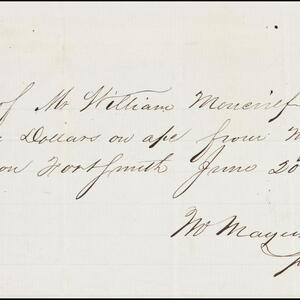 of Mr William Moncrief
Dollars on ape from
on Fort Smith June 20